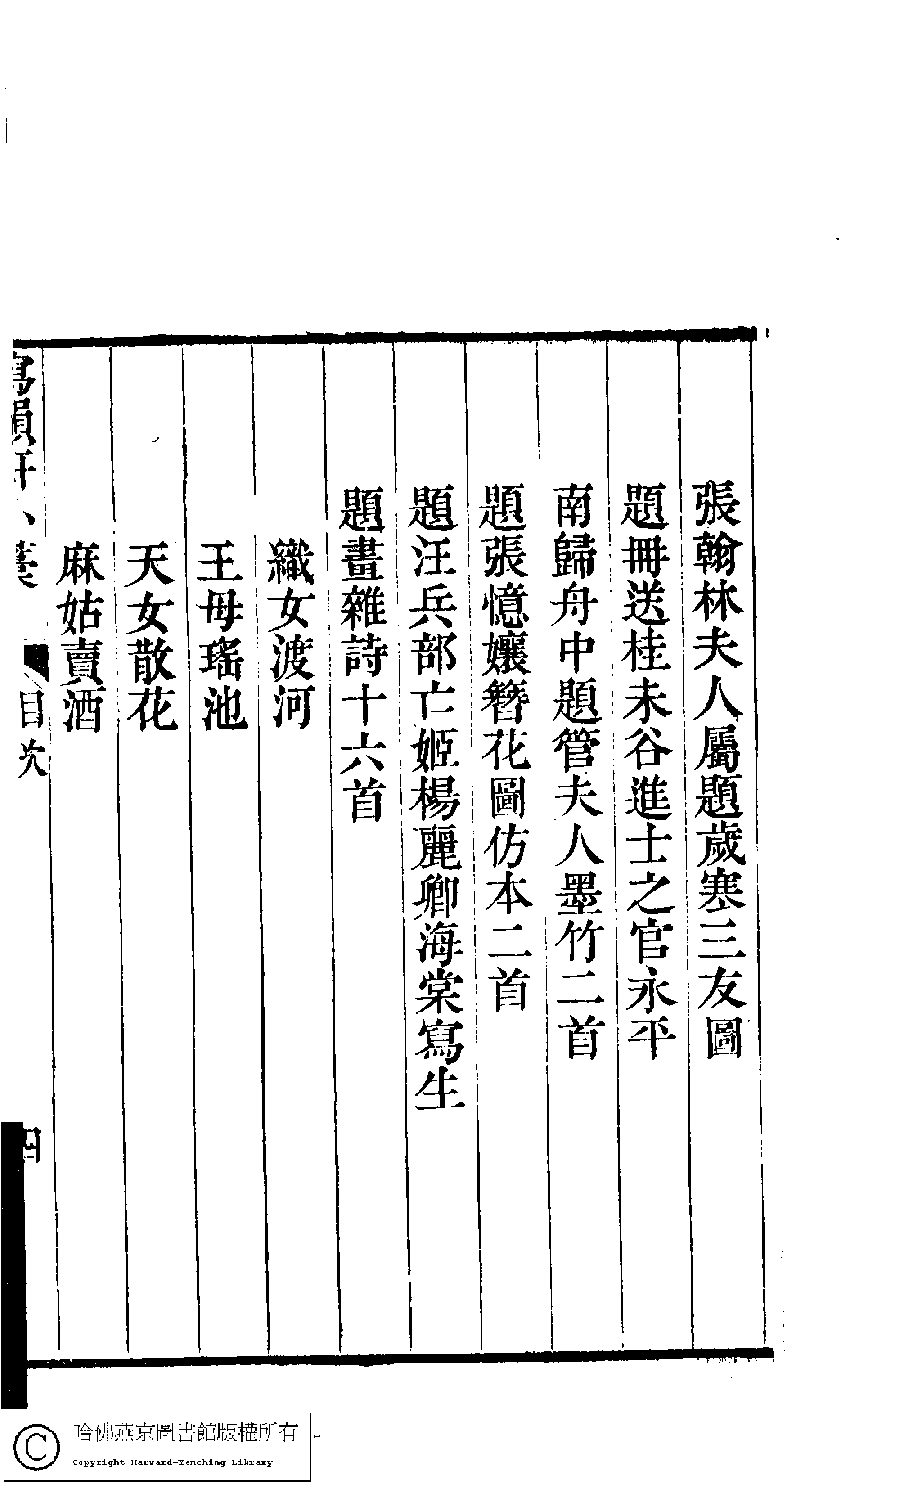 張翰林夫人屬題歲寒三友圖
題冊送桂未谷進士之官永平
南歸舟中題管夫人墨竹二首
題張憶孃簪花圖仿本二首
題汪兵部亡姬楊麗卿海棠寫生
題畫雜詩十六首
織女渡河
王母瑤池
天女散花
麻姑賣酒
寫韻軒小藁 目次 四
哈佛燕京圖書館版權所有
Copyright Harvard-Yenching Library